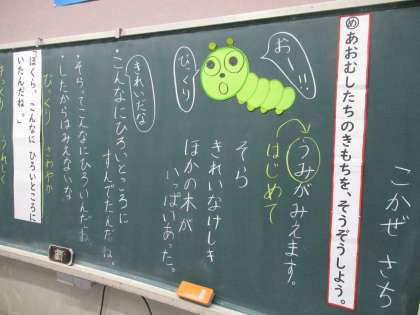 こかぜ さち
め あおむしたちのきもちを、そうぞうしよう。
おー!!!
びっくり
うみがみえます。
はじめて
そら
きれいなけしき
ほかの木が
いっぱいあった。
きれいだな
・こんなにひろいところに
すんでたんだね。
・そらってこんなにひろいんだね。
・したからはみえないな
びっくり さわやか
「ぼくら、こんなに ひろいところに
いたんだね。」
うれしく